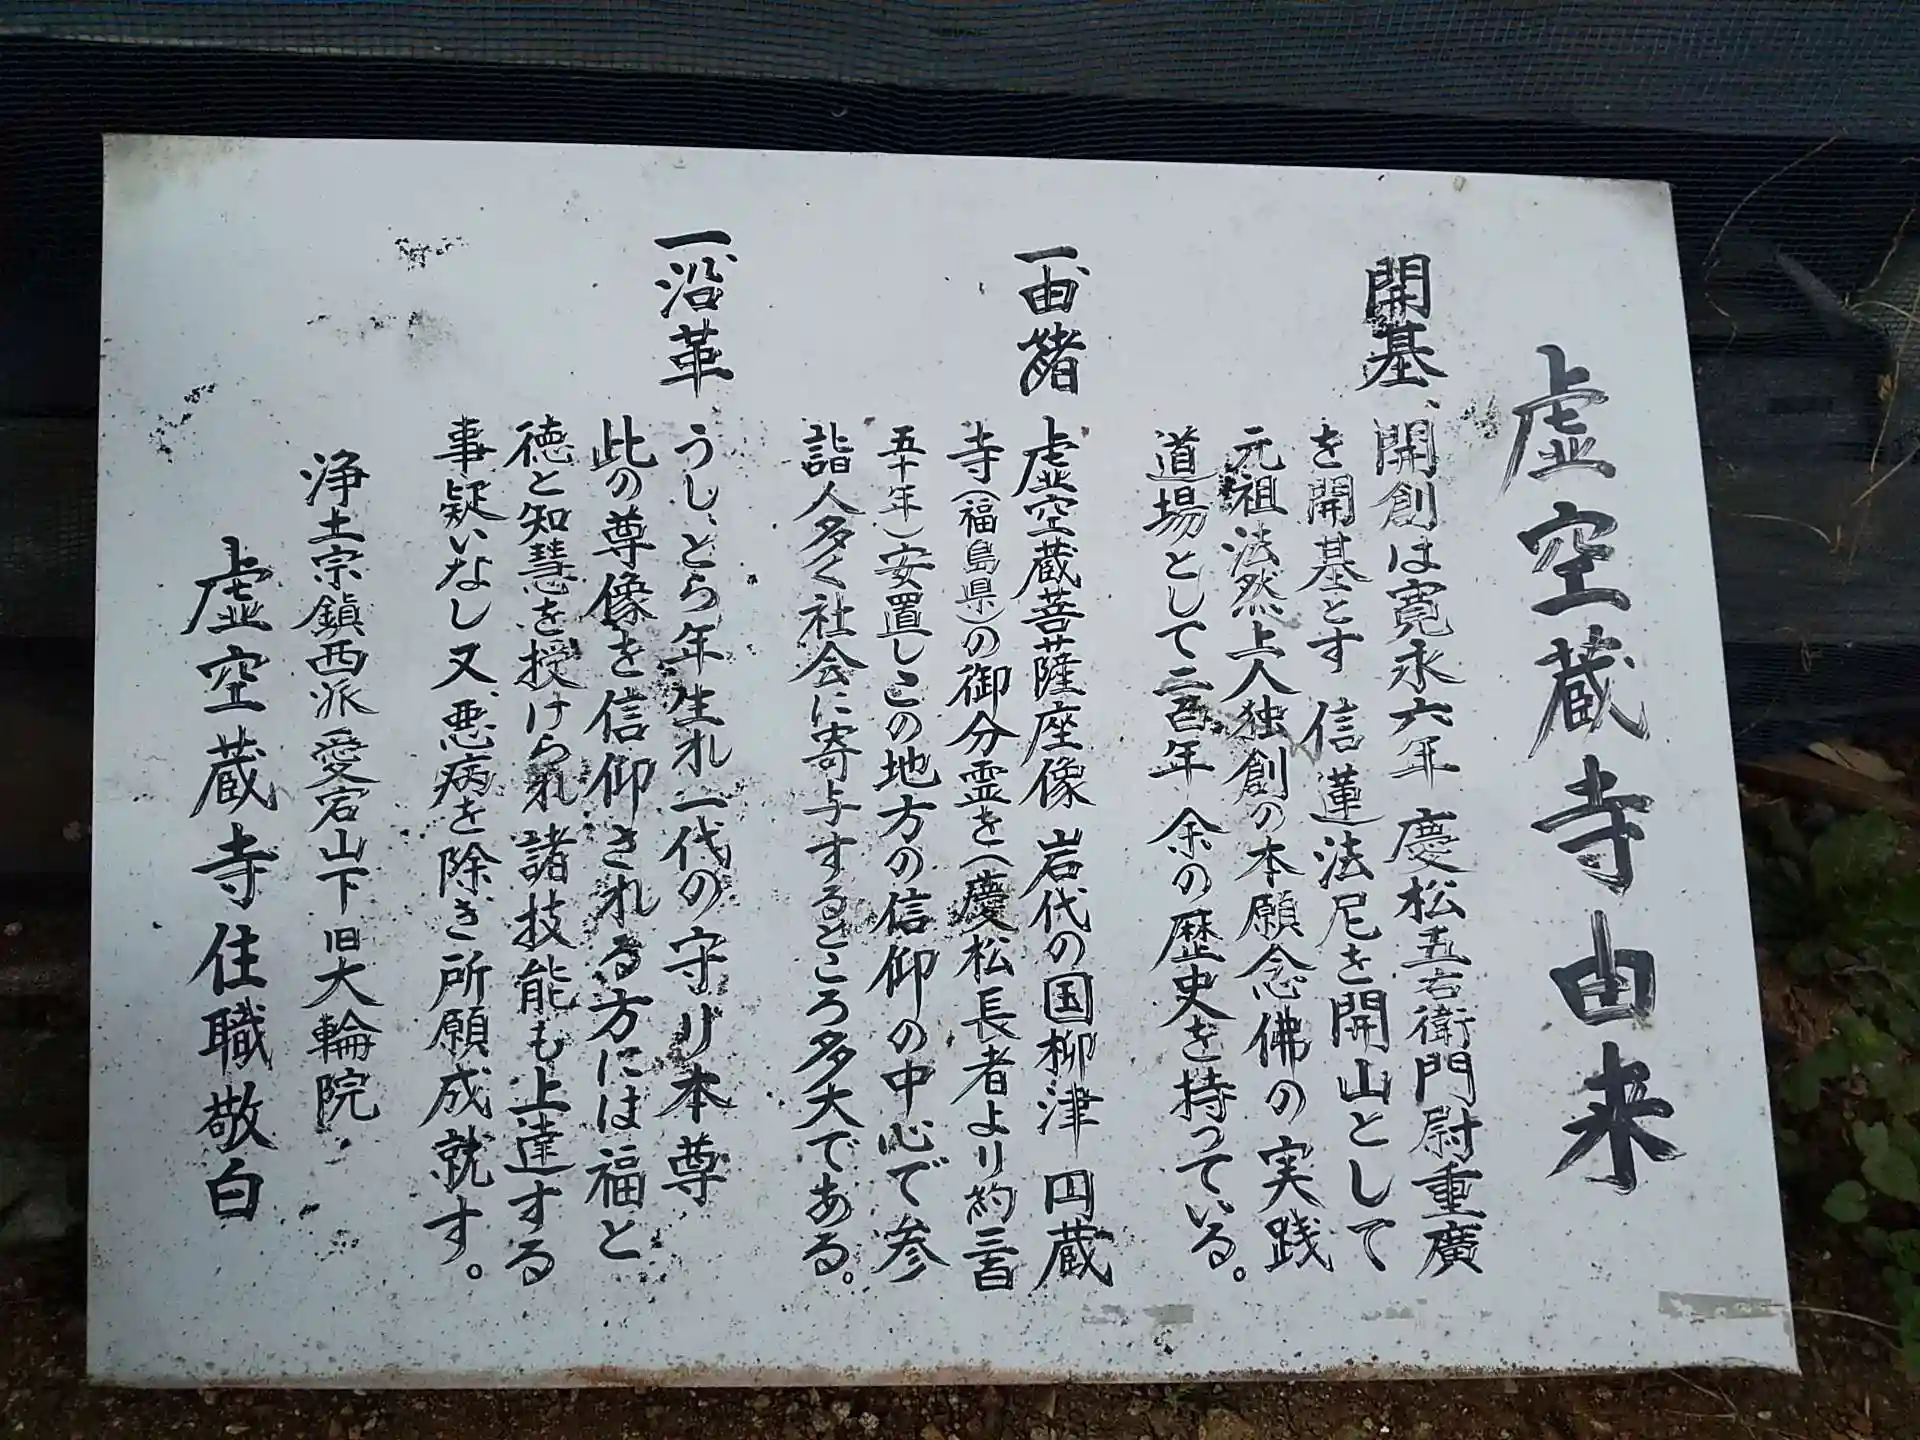 虚空蔵寺由来
開基、開創は寛永六年 慶松五右衛門尉重廣
を開基とす 信蓮法尼を開山として
元祖法然上人独創の本願念佛の実践
道場として三百年 余の歴史を持っている。
一、由緒 虚空蔵菩薩座像 岩代の国柳津 円蔵
寺(福島県)の御分霊を(慶松長者より約三百
五十年)安置しこの地方の信仰の中心で参
詣人多く社会に寄与するところ多大である。
一、沿革 うし、とら年生れ一代の守り本尊
此の尊像を信仰される方には福と
徳と知慧を授けられ諸技能も上達する
事疑いなし又、悪病を除き所願成就す。
浄土宗鎮西派 愛宕山下 旧大輪院
虚空蔵寺住職敬白